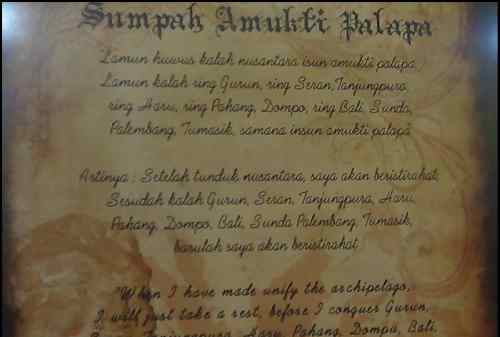 Sumpah Amukti Palapa
Lamun huwus kalah nusantara isun amukti palapa,
Lamun kalah ring Gurun, ring Seran, Tanjungpura,
ring Haru, ring Pahang, Dompo, ring Bali, Sunda,
Palembang, Tumasik, samana insun amukti palapa
Artinya : Setelah tunduk nusantara, saya akan beristirahat,
Sesudah kalah Gurun, Seran, Tanjungpura, Haru,
Pahang, Dompo, Bali, Sunda Palembang, Tumasik,
barulah saya akan beristirahat
"When I have made unify the archipelago,
I will just take a rest, before I conquer Gurun,
Tanjungpura, Haru, Pahang, Dompu, Bali,